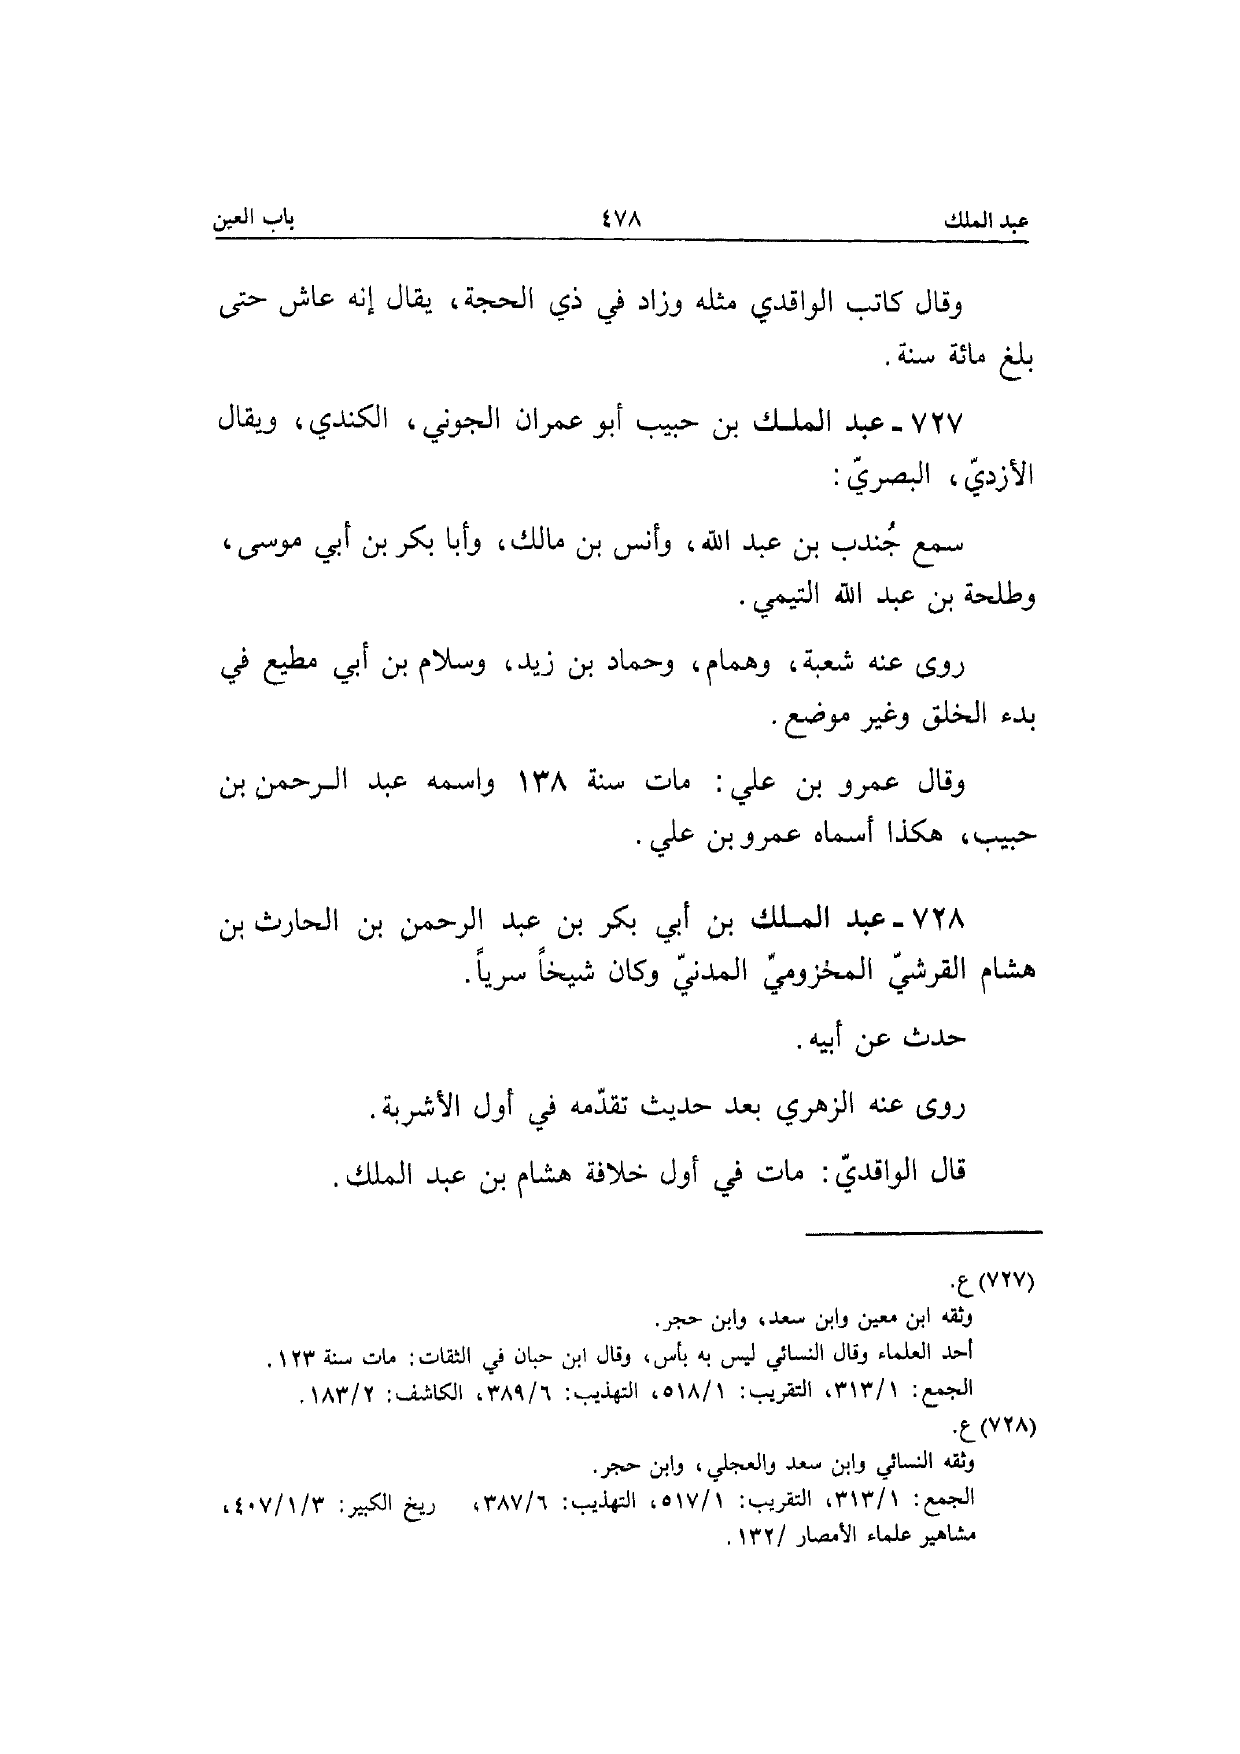 عبد الملك ٤٧٨ باب العين
وقال كاتب الواقدي مثله وزاد في ذي الحجة، يقال إنه عاش حتى
بلغ مائة سنة.
٧٢٧ ـ عبد الملك بن حبيب أبو عمران الجوني، الكندي، ويقال
الأزديّ، البصريّ:
سمع جُندب بن عبد الله، وأنس بن مالك، وأبا بكر بن أبي موسى،
وطلحة بن عبد الله التيمي.
روى عنه شعبة، وهمام، وحماد بن زيد، وسلام بن أبي مطيع في
بدء الخلق وغير موضع.
وقال عمرو بن علي: مات سنة ١٣٨ واسمه عبد الرحمن بن
حبيب، هكذا أسماه عمرو بن علي.
٧٢٨ ـ عبد الملك بن أبي بكر بن عبد الرحمن بن الحارث بن
هشام القرشيّ المخزوميّ المدنيّ وكان شيخاً سرياً.
حدث عن أبيه.
روى عنه الزهري بعد حديث تقدّمه في أول الأشربة.
قال الواقديّ: مات في أول خلافة هشام بن عبد الملك.
(٧٢٧) ع.
وثقه ابن معين وابن سعد، وابن حجر.
أحد العلماء وقال النسائي ليس به بأس، وقال ابن حبان في الثقات: مات سنة ١٢٣.
الجمع: ٣١٣/١، التقريب: ٥١٨/١، التهذيب: ٣٨٩/٦، الكاشف: ١٨٣/٢.
(٧٢٨) ع.
وثقه النسائي وابن سعد والعجلي، وابن حجر.
الجمع: ٣١٣/١، التقريب: ٥١٧/١، التهذيب: ٣٨٧/٦، ريخ الكبير: ٤٠٧/١/٣،
مشاهير علماء الأمصار /١٣٢.